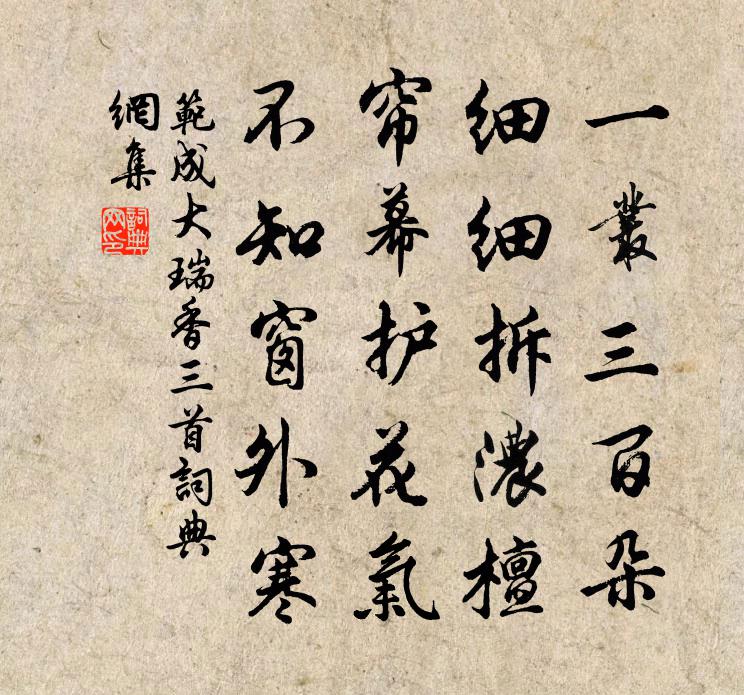 一叢三百朵
细细拆濃檀
帘幕护花氣
不知窗外寒
範成大瑞香三首詞典
網集
詞典
网印